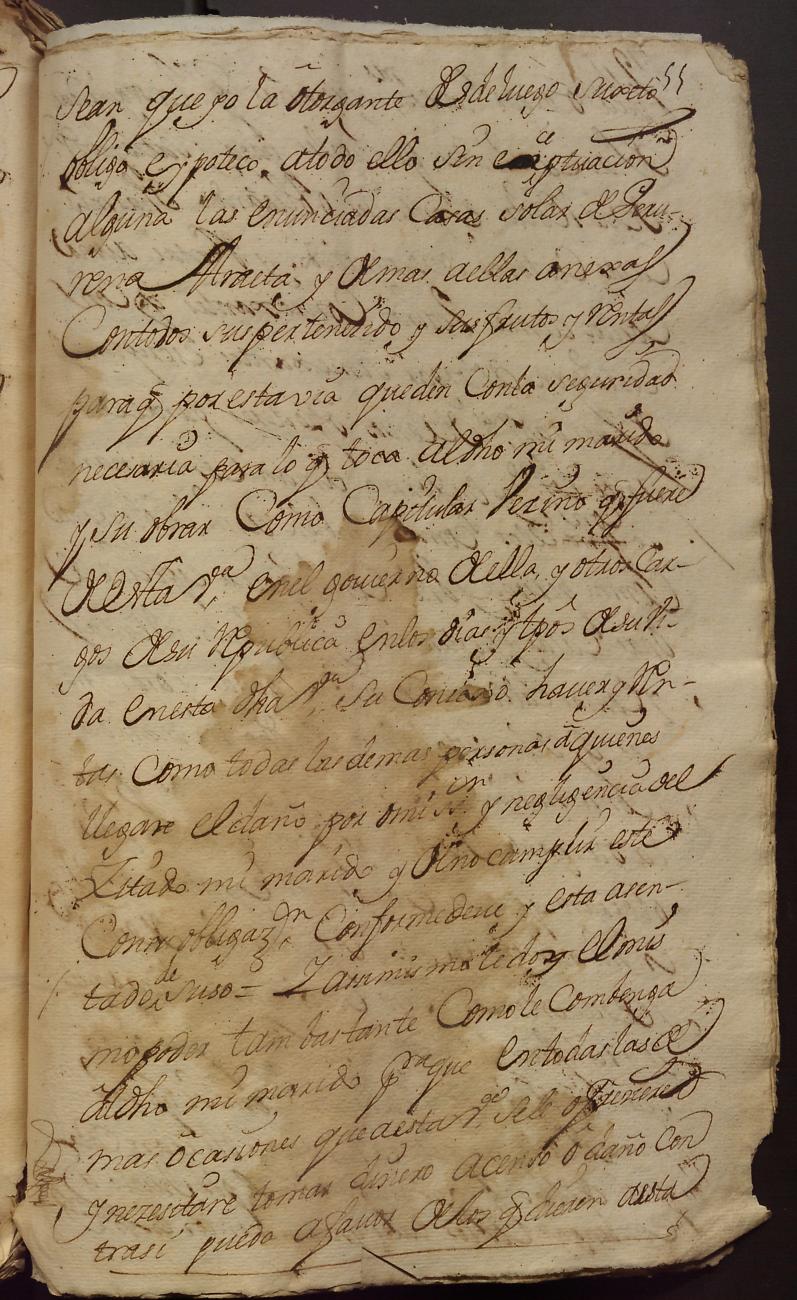 sean que yo la otorgante desde luego suxeto 55
obligo eypoteco atodo ello sin exceptuacion
alguna las enunciadas Casas solar de Beru-
rena Araeta y demas aellas anexas
Contodos suspertenecido y susfrutos y rentas
paraq̃ porestavia queden Conla seguridad
necesaria paralo q̃ toca aldho mi marido
y su obrar Como Capitular Vezino q̃ fuere
de esta v.ª enel govierno de ella, y otros car-
gos desu Republica enlos dias y tpõs desu vi-
da enesta dha v.ª su Concejo haver y Ren-
tas Como todas las demas personas aquienes
llegare el daño por omisi.on y negligencia del
Zitado mi marido y deno cumplir este
Contr obligaz.on Conformedeve y esta asen-
tado de suso = Zassimismo le doy el mis
mo poder tam bastante Como le Combenga
aldho mi marido p.ra que entodas las de
mas ocasiones que aesta v.ª sele ofrecieren
y nezesitare tomar dinero acenso o daño con
trasi pueda afavor delos q̃ dieren aesta